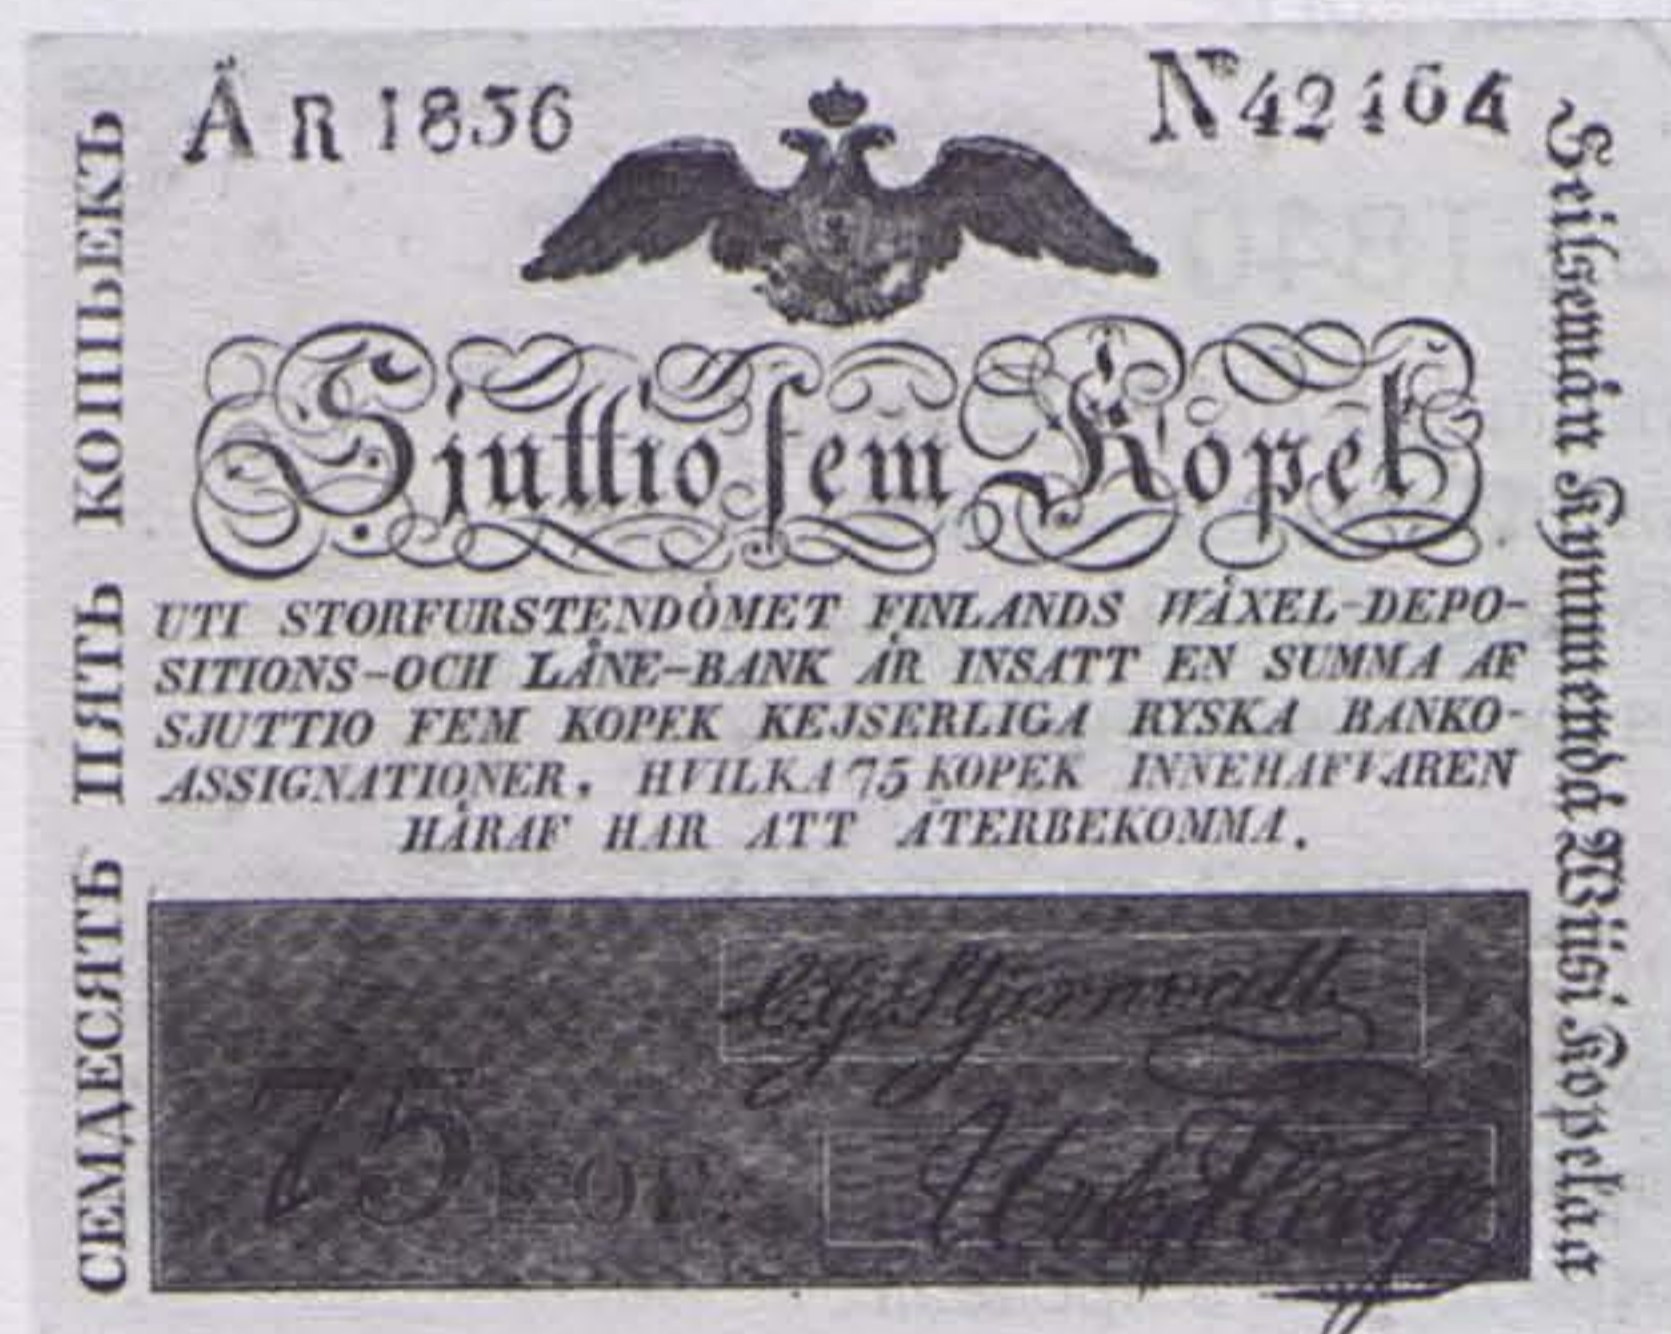 ÅR 1836
No 42464
Sjuttio fem Kopek
UTI STORFURSTENDÖMET FINLANDS WÄXEL-DEPO-
SITIONS-OCH LÅNE-BANK ÄR INSATT EN SUMMA AF
SJUTTIO FEM KOPEK KEJSERLIGA RYSKA BANKO-
ASSIGNATIONER, HVILKA 75 KOPEK INNEHAFVAREN
HÄRAF HAR ATT ÅTERBEKOMMA.
75 KOP.
C.G. Stjernvall
СЕМДЕСЯТЬ ПЯТЬ КОПЬЕКЪ
Seitsemän Kymmendä Wiisi Kopekaa